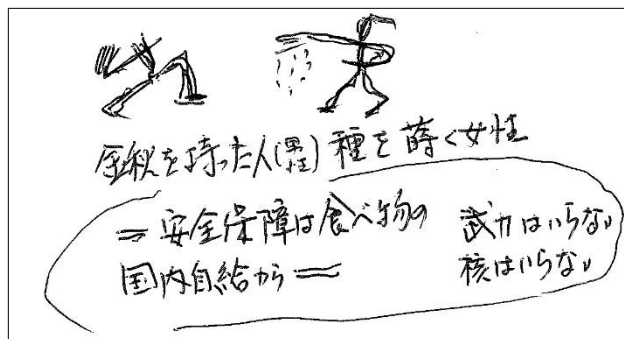 を持った人(男性) 種を蒔く女性
=安全保障は食べ物の
国内自給から=
武力はいらない
核はいらない